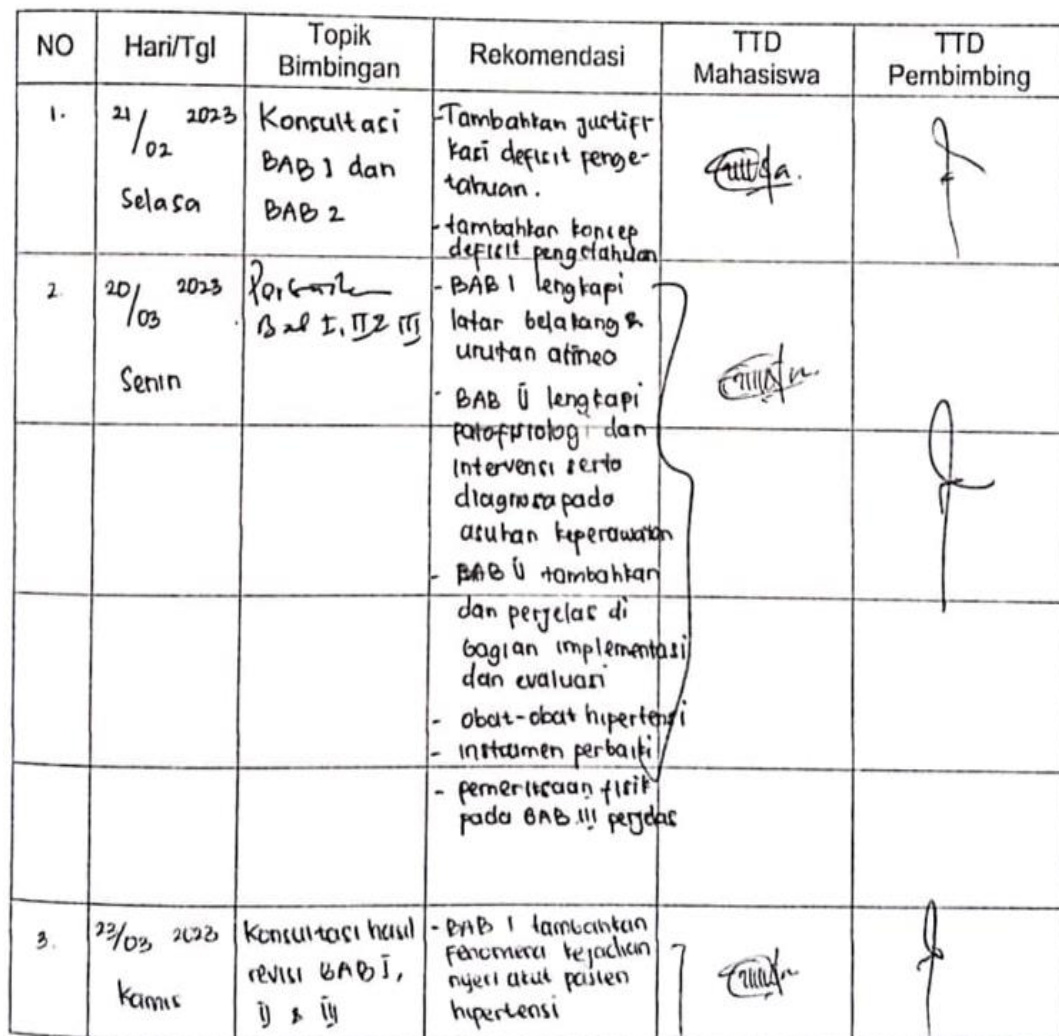 NO Hari/Tgl Topik Bimbingan Rekomendasi TTD Mahasiswa TTD Pembimbing
1. 21/02 2023 Selasa
Konsultasi
BAB 1 dan
BAB 2
-Tambahkan justifi
kasi deficit penge-
tahuan.
-tambahkan konsep
deficit pengetahuan
2. 20/03 2023 Senin
Bab I, II & III
- BAB 1 lengkapi
latar belakang &
urutan
- BAB II lengkapi
patofisiologi dan
intervensi serta
diagnosa pada
asuhan keperawatan
- BAB II tambahkan
dan perjelas di
bagian implementasi
dan evaluasi
- obat-obat hipertensi
- instrumen perbaiki
- pemeriksaan fisik
pada BAB III perjelas
3. 23/03 2023 Kamis
Konsultasi hasil
revisi BAB I,
II & III
- BAB 1 tambahkan
fenomena kejadian
nyeri akut pasien
hipertensi